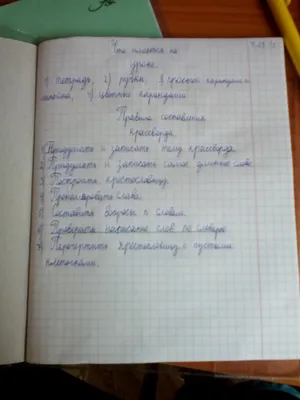 Что имеется на
уроке.
1) тетрадь, 2) ручка, 3) простой карандаш и
4) цветные карандаши
Правила составления
кроссворда.
Придумать и записать тему кроссворда
Придумать и записать самое длинное слово
Построить крестословицу.
Пронумеровать слова.
Составить вопросы к словам.
Проверить написание слов по словарю
7 Перечертить крестословицу с пустыми
клеточками.